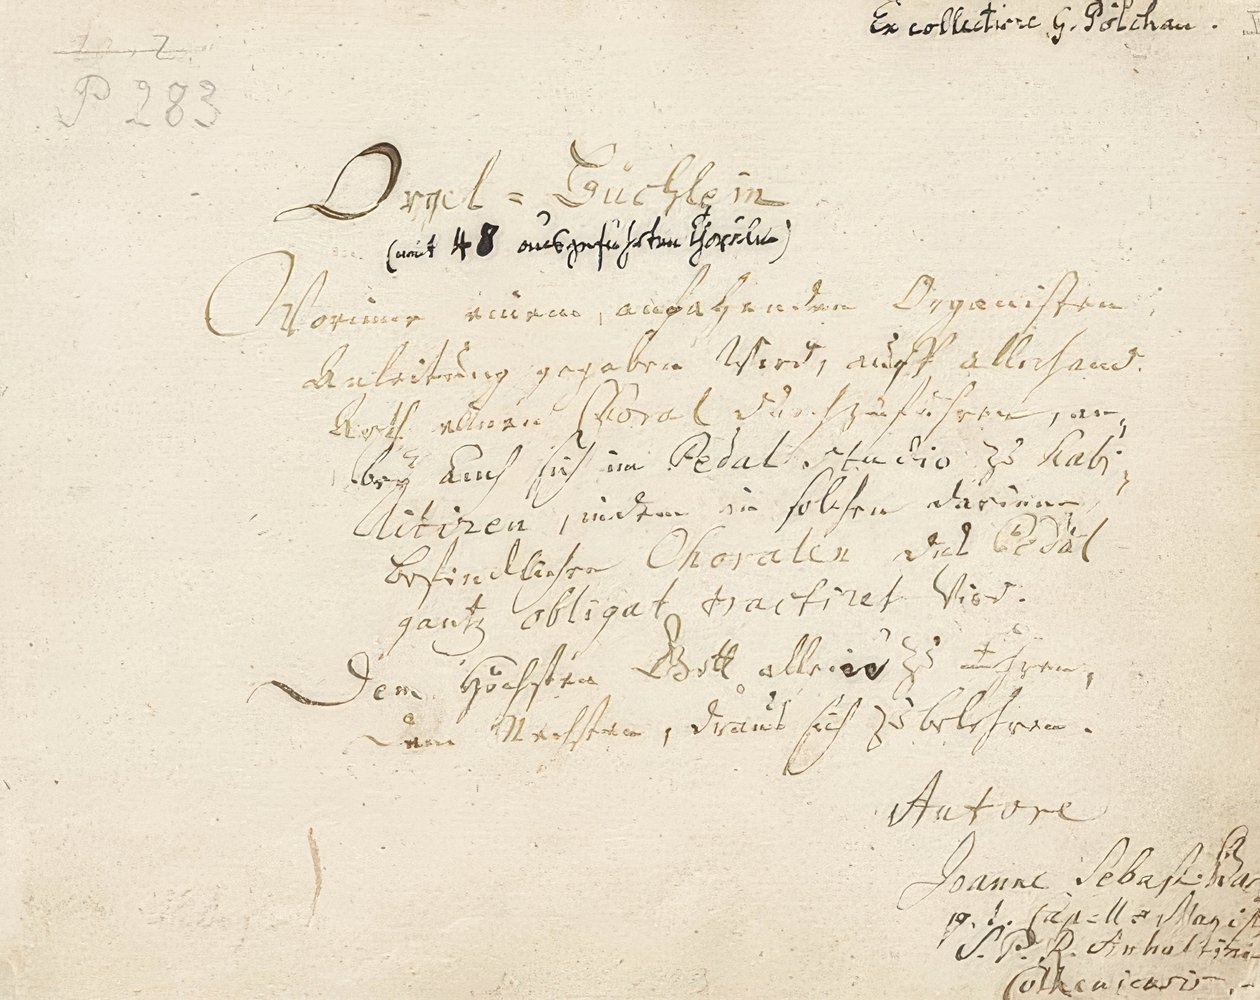 Ex collectione G. Pölchau.
P 283
Orgel-Büchlein
(mit 48 ausgeführten Chorälen)
Worinne einem anfahenden Organisten
Anleitung gegeben wird, auff allerhand
Arth einen Choral durchzuführen, an-
bey auch sich im Pedal studio zu habi-
litiren, indem in solchen darinne
befindlichen Choralen das Pedal
gantz obligat tractiret wird.
Dem Höchsten Gott allein zu Ehren,
Dem Nechsten, draus sich zu belehren.
Autore
Joanne Sebast. Bac
p. t. Capellæ Magist
S. P. R. Anhaltini-
Cotheniensis.